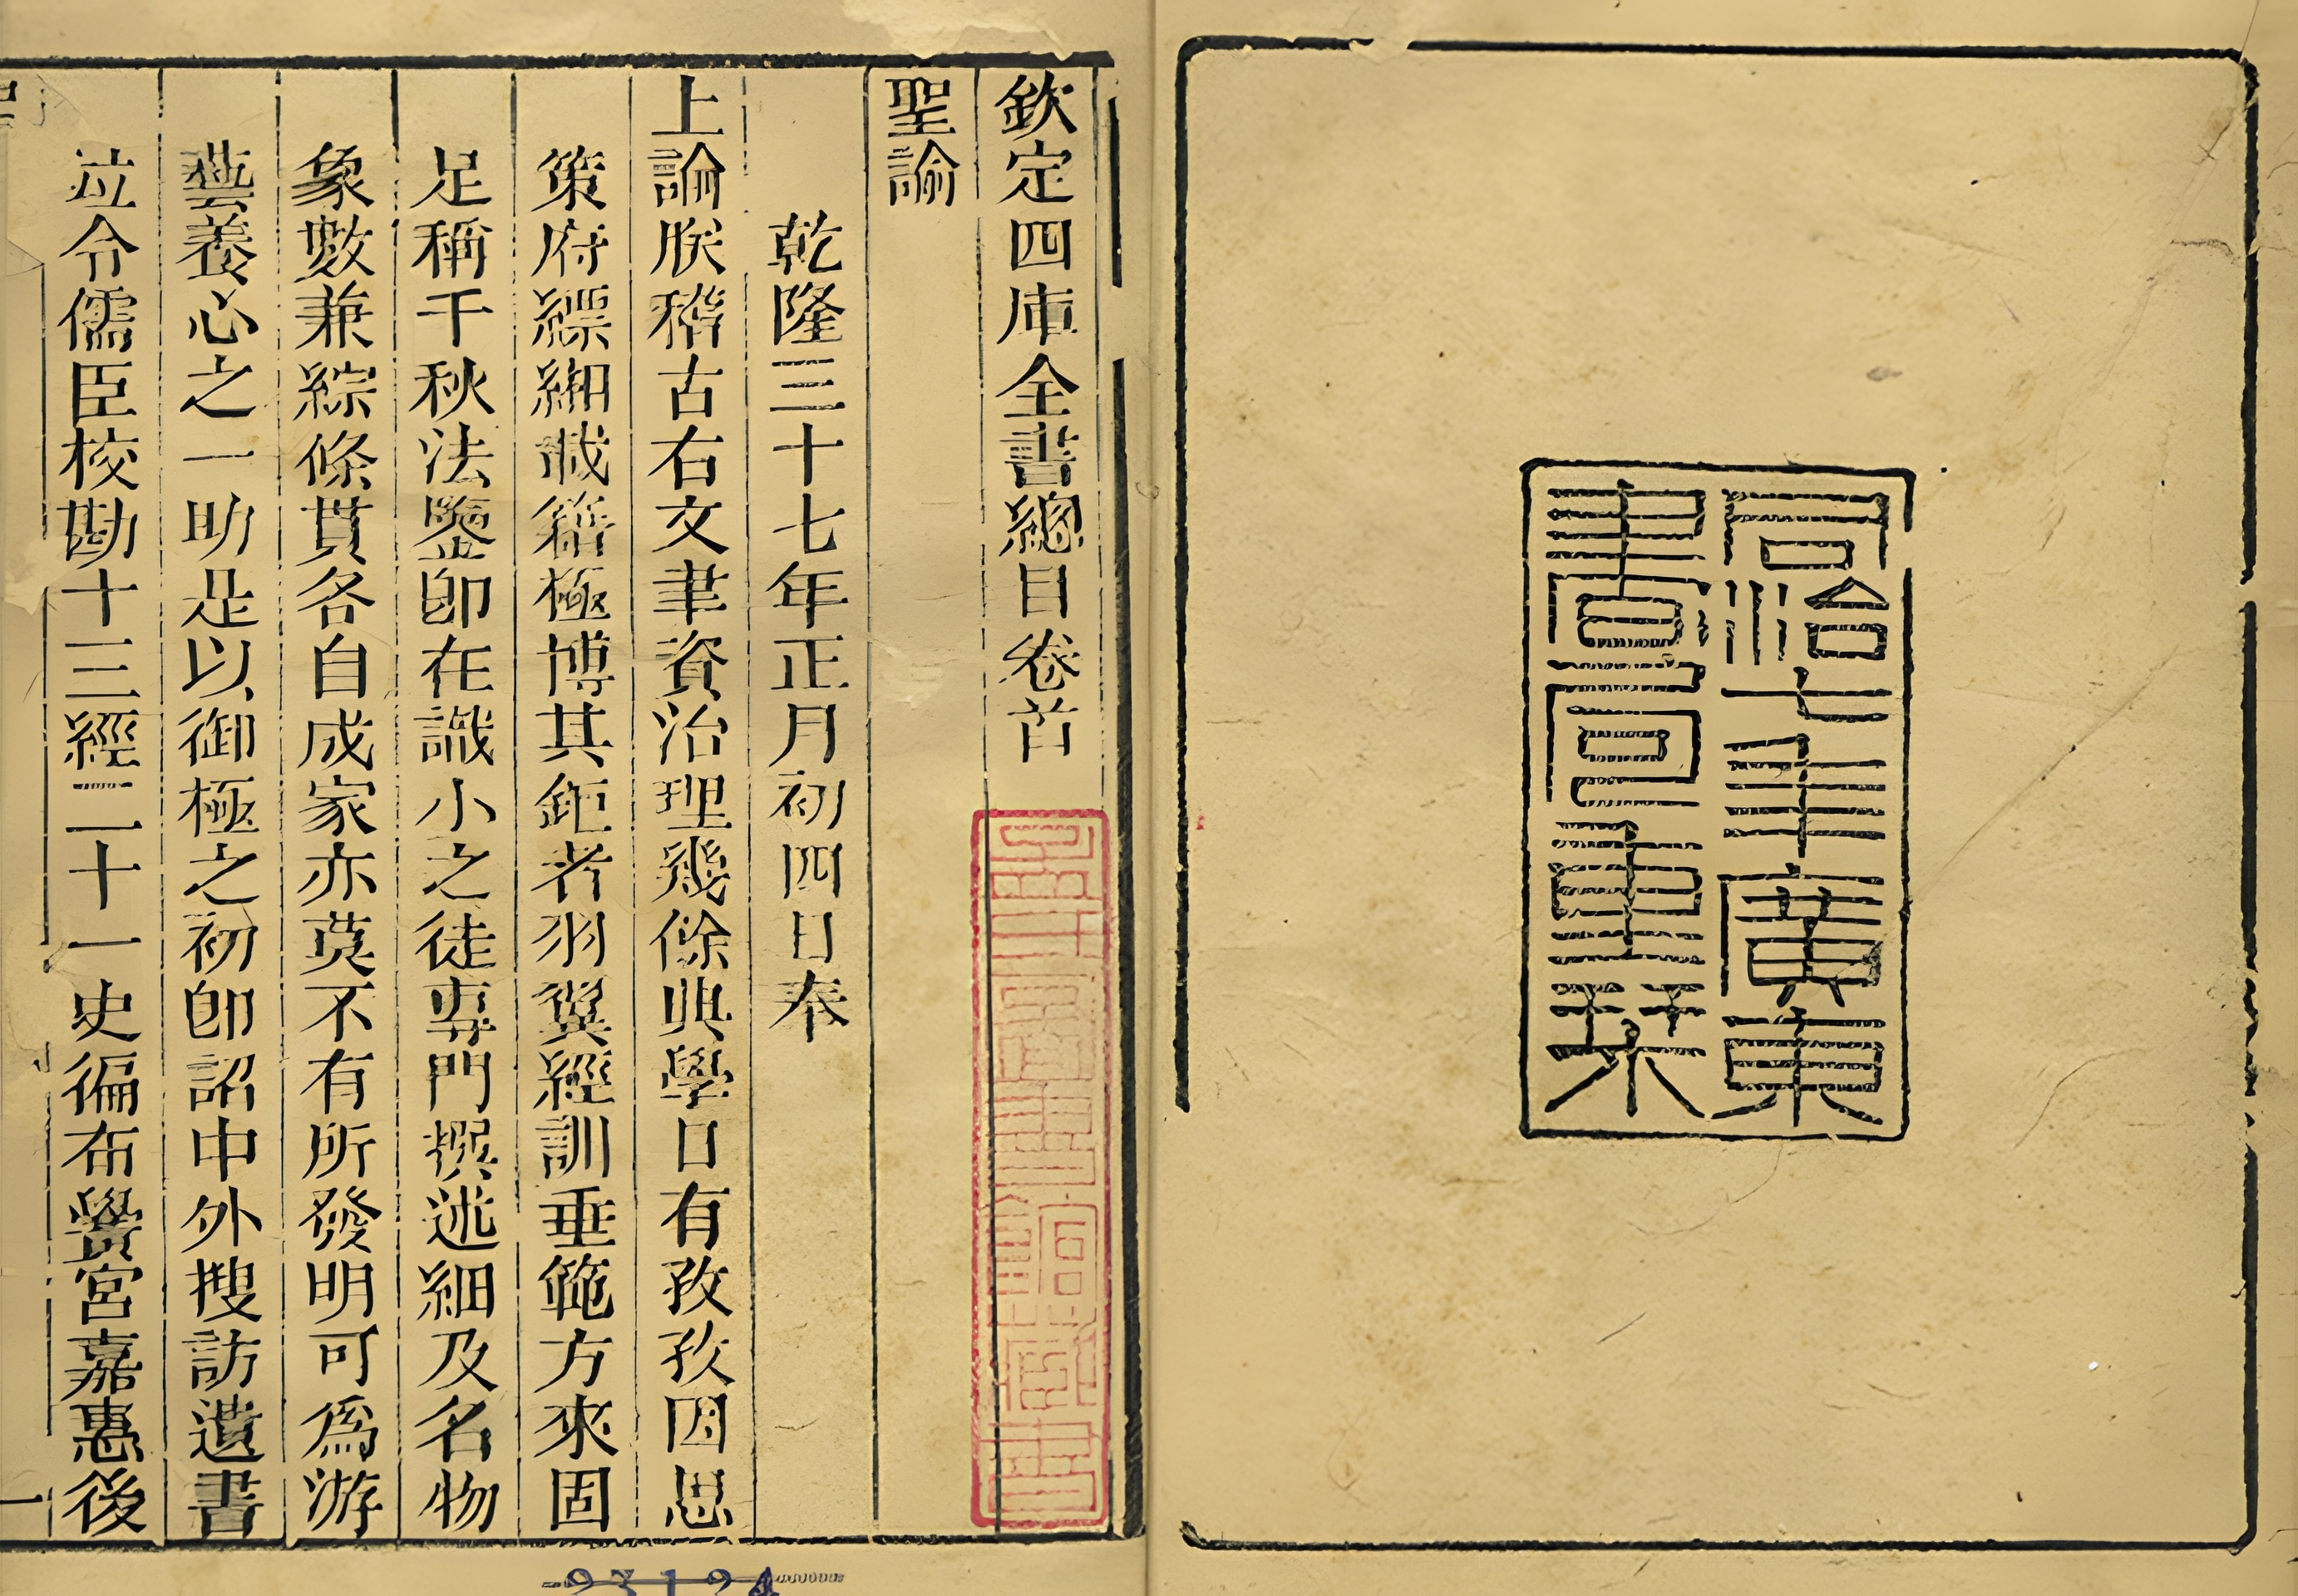 同治七年廣東
書局重栞
欽定四庫全書總目卷首
聖諭
乾隆三十七年正月初四日奉
上諭朕稽古右文聿資治理幾餘典學日有孜孜因思
策府縹緗載籍極博其鉅者羽翼經訓垂範方來固
足稱千秋法鑒卽在識小之徒專門撰述細及名物
象數兼綜條貫各自成家亦莫不有所發明可爲游
藝養心之一助是以御極之初卽詔中外搜訪遺書
竝令儒臣校勘十三經二十一史徧布黌宮嘉惠後
一
23124